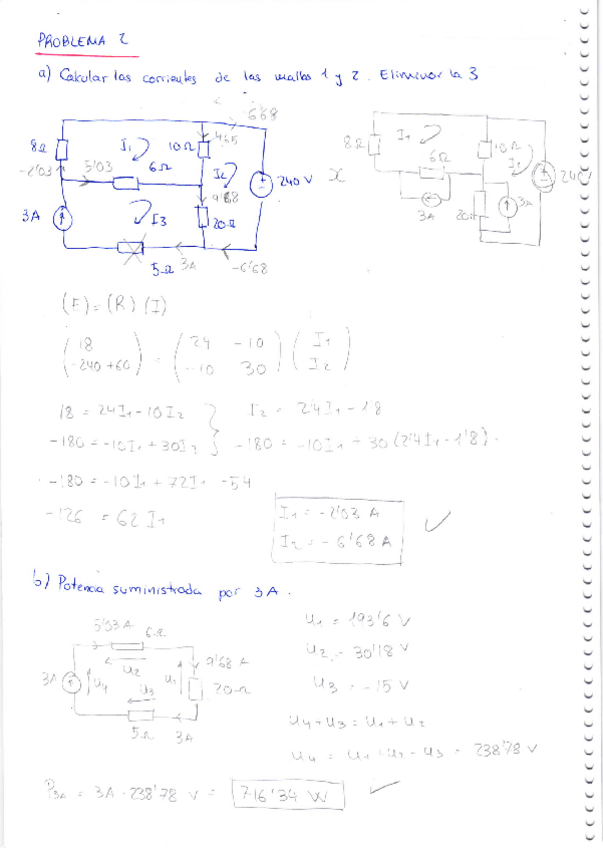 PROBLEMA 2
a) Calcular las corrientes de las mallas 1 y 2. Eliminar la 3
-6'68
8Ω I₁ 10Ω 4'65
-2'03 5'03 6Ω I₂ 240 V
9'68
3A I₃ 20Ω
5Ω 3A -6'68
8Ω I₁ 10Ω
6Ω I₂ 240
3A 20Ω 3A
(E) = (R) (I)
18 = 24 -10 I₁
-240 + 60 -10 30 I₂
18 = 24I₁ - 10I₂ I₂ = 2'4I₁ - 1'8
-180 = -10I₁ + 30I₂ -180 = -10I₁ + 30(2'4I₁ - 1'8).
-180 = -10I₁ + 72I₁ - 54
-126 = 62 I₁
I₁ = -2'03 A
I₂ = -6'68 A
b) Potencia suministrada por 3A.
5'03A 6Ω
u₂ 9'68 A
3A u₄ u₃ u₁ 20Ω
5Ω 3A
u₁ = 193'6 V
u₂ = 30'18 V
u₃ = -15 V
u₄ + u₃ = u₁ + u₂
u₄ = u₁ + u₂ - u₃ = 238'78 V
P₃ₐ = 3A · 238'78 V = 716'34 W